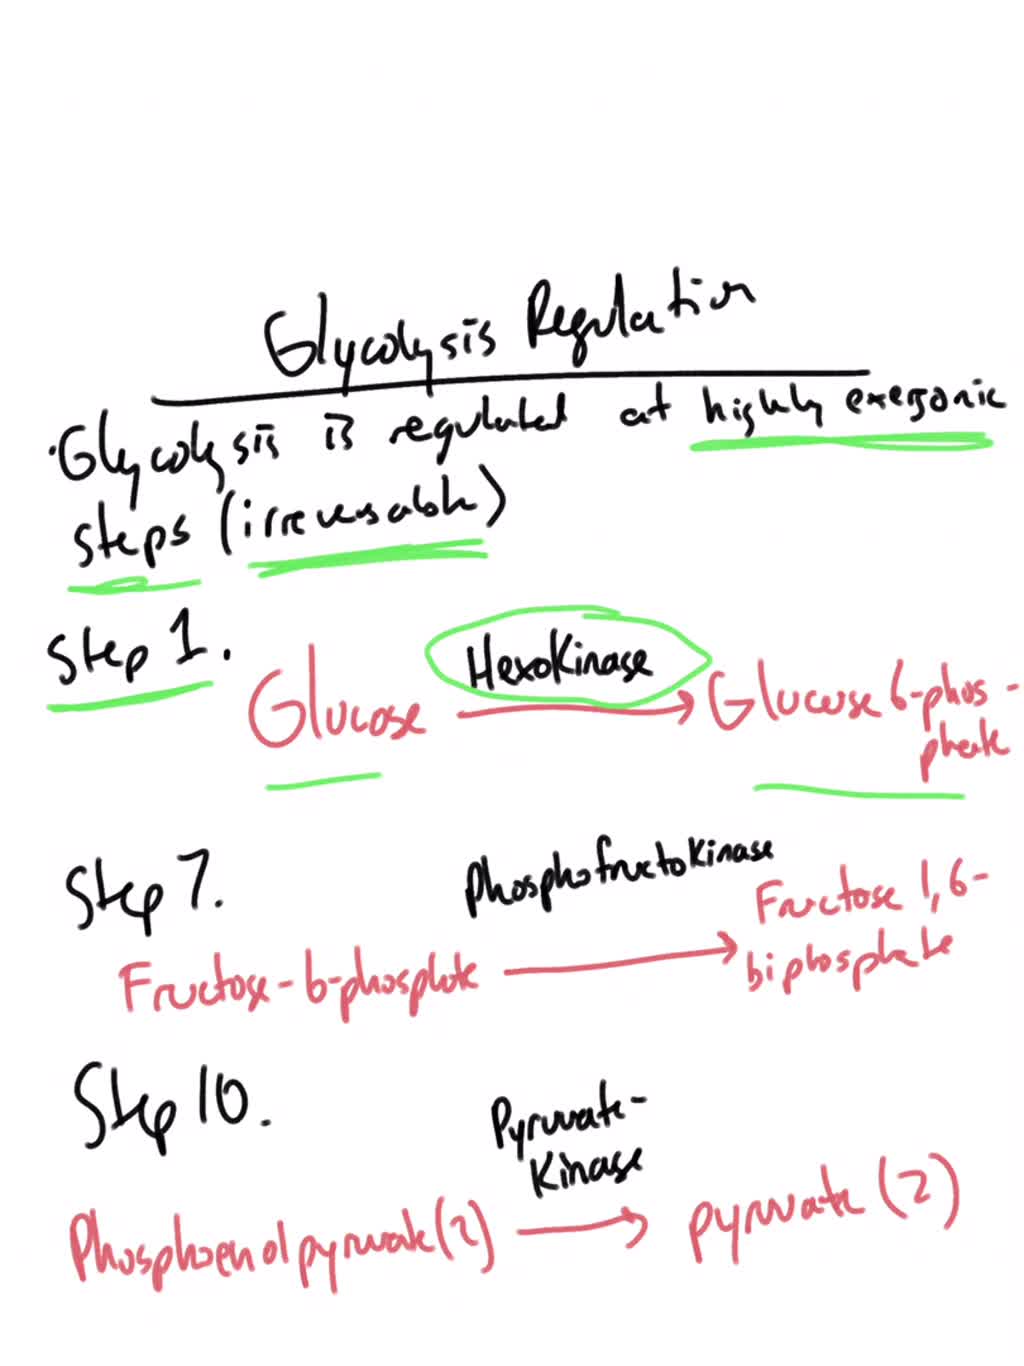 Glycolysis Regulation
·Glycolysis is regulated at highly exergonic
steps (irreversable)
Step 1.
Hexokinase
Glucose → Glucose 6-phos-
phate
Step 7.
Phosphofructokinase
Fructose 1,6-
Fructose-6-phosphate → biphosphate
Step 10.
Pyruvate-
Kinase
Phosphoenolpyruvate(2) → pyruvate (2)